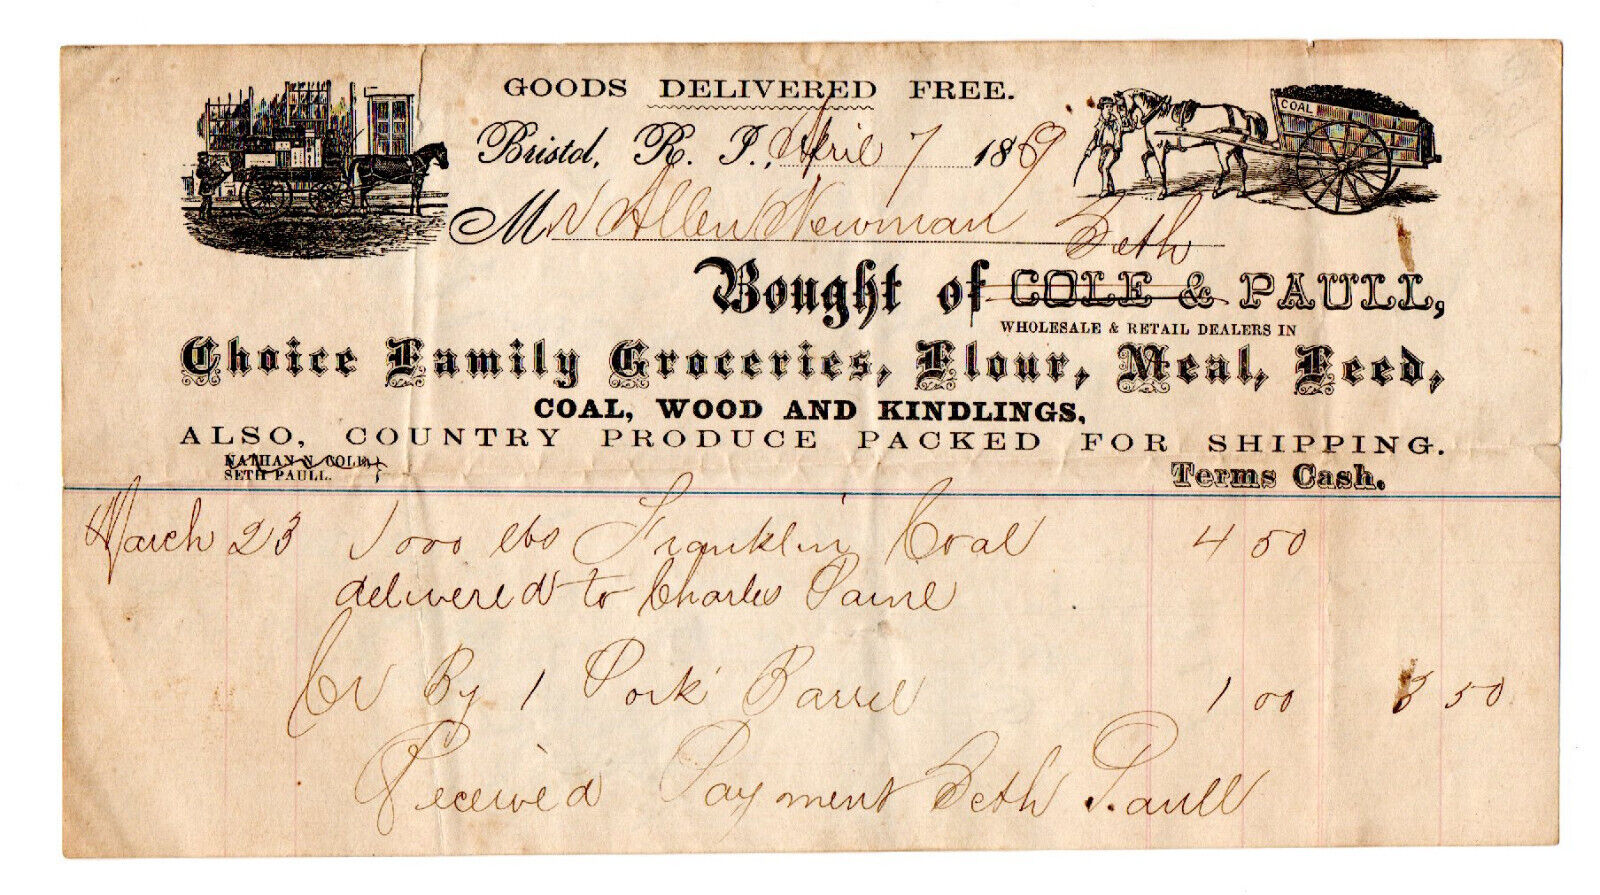 GOODS DELIVERED FREE.
Bristol, R. I., April 7 1869
COAL
Mr Allen Newman
Seth
Bought of COLE & PAULL,
WHOLESALE & RETAIL DEALERS IN
Choice Family Groceries, Flour, Meal, Feed,
COAL, WOOD AND KINDLINGS,
ALSO, COUNTRY PRODUCE PACKED FOR SHIPPING.
NATHAN N. COLE,
SETH PAULL.
Terms Cash.
March 23 1000 lbs Franklin Coal 4 50
delivered to Charles Paine
Cr By 1 Pork Barrel 1 00 3 50
Received Payment Seth Paull